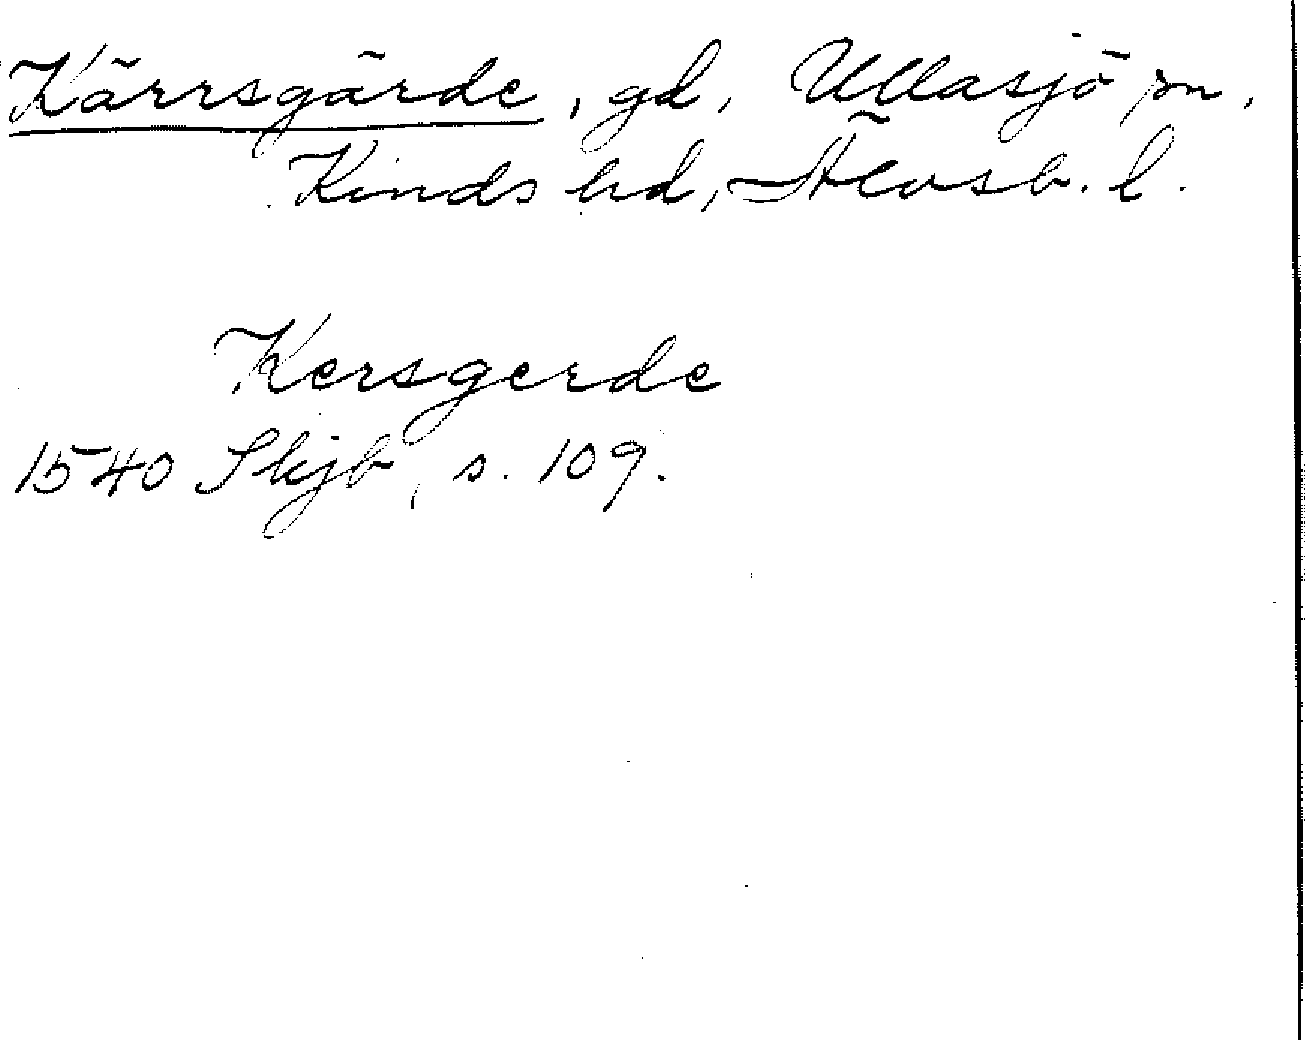 Kärrsgärde, gd, Ullasjö sn,
Kinds hd, Älvsb. l.
Kersgerde
1540 Skjb, s. 109.